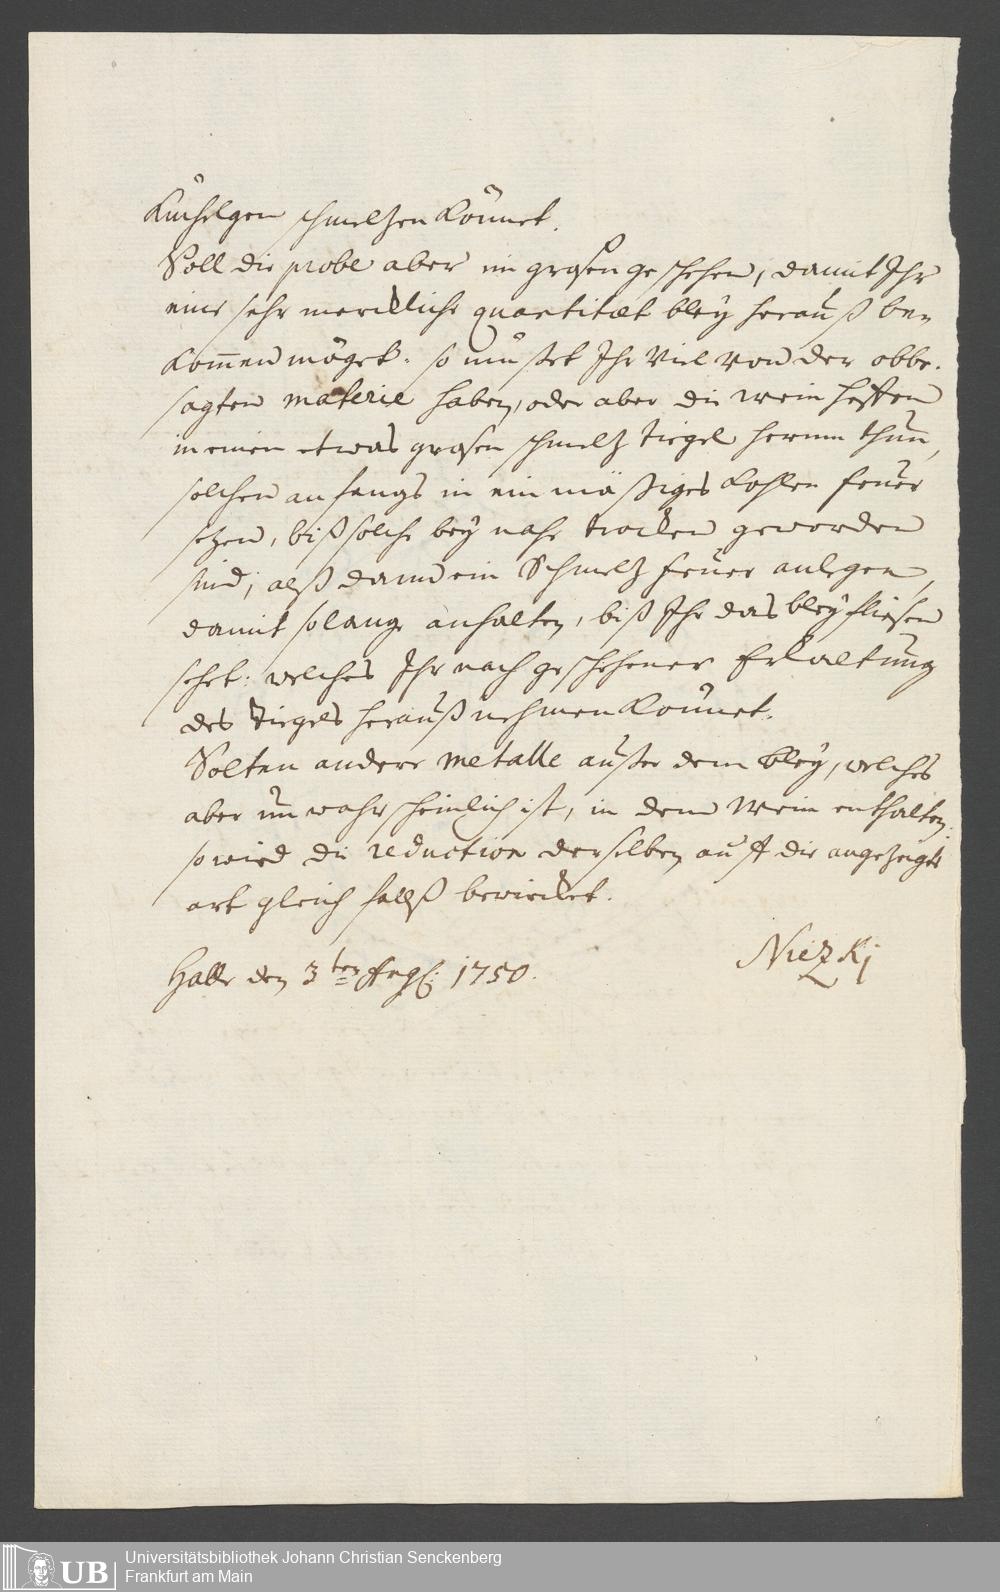 Küchelgen schmeltzen könnet.
Soll die probe aber im grosen geschehen, damit Ihr
eine sehr merckliche quantitæt bley herauß be-
kommen möget: so müsset Ihr Viel von der obbe-
sagten materie haben, oder aber die wein heffen
in einen etwas grosen schmeltz tiegel herein thun,
solchen anfangs in ein mäßiges kohlen feuer
sezen, biß solche bey nahe trocken geworden
sind, alß dann ein Schmeltz feuer anlegen,
damit solange anhalten, biß Ihr das bley fliesen
sehet: welches Ihr nach geschehener Erkaltung
des tiegels herauß nehmen könnet.
Solten andere metalle ausser dem bley, welches
aber unwahrscheinlich ist, in dem Wein enthalten:
so wird die reduction derselben auff die angezeigte
art gleich fallß bewircket.
Halle den 3ten 1750.
Niezkj
UB
Universitätsbibliothek Johann Christian Senckenberg
Frankfurt am Main